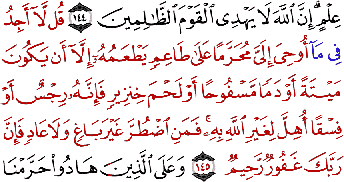 عِلْمٍ إِنَّ ٱللَّهَ لَا يَهْدِى ٱلْقَوْمَ ٱلظَّٰلِمِينَ ١٤٤ قُل لَّآ أَجِدُ
فِى مَآ أُوحِىَ إِلَىَّ مُحَرَّمًا عَلَىٰ طَاعِمٍ يَطْعَمُهُۥٓ إِلَّآ أَن يَكُونَ
مَيْتَةً أَوْ دَمًا مَّسْفُوحًا أَوْ لَحْمَ خِنزِيرٍ فَإِنَّهُۥ رِجْسٌ أَوْ
فِسْقًا أُهِلَّ لِغَيْرِ ٱللَّهِ بِهِۦ فَمَنِ ٱضْطُرَّ غَيْرَ بَاغٍ وَلَا عَادٍ فَإِنَّ
رَبَّكَ غَفُورٌ رَّحِيمٌ ١٤٥ وَعَلَى ٱلَّذِينَ هَادُوا۟ حَرَّمْنَا